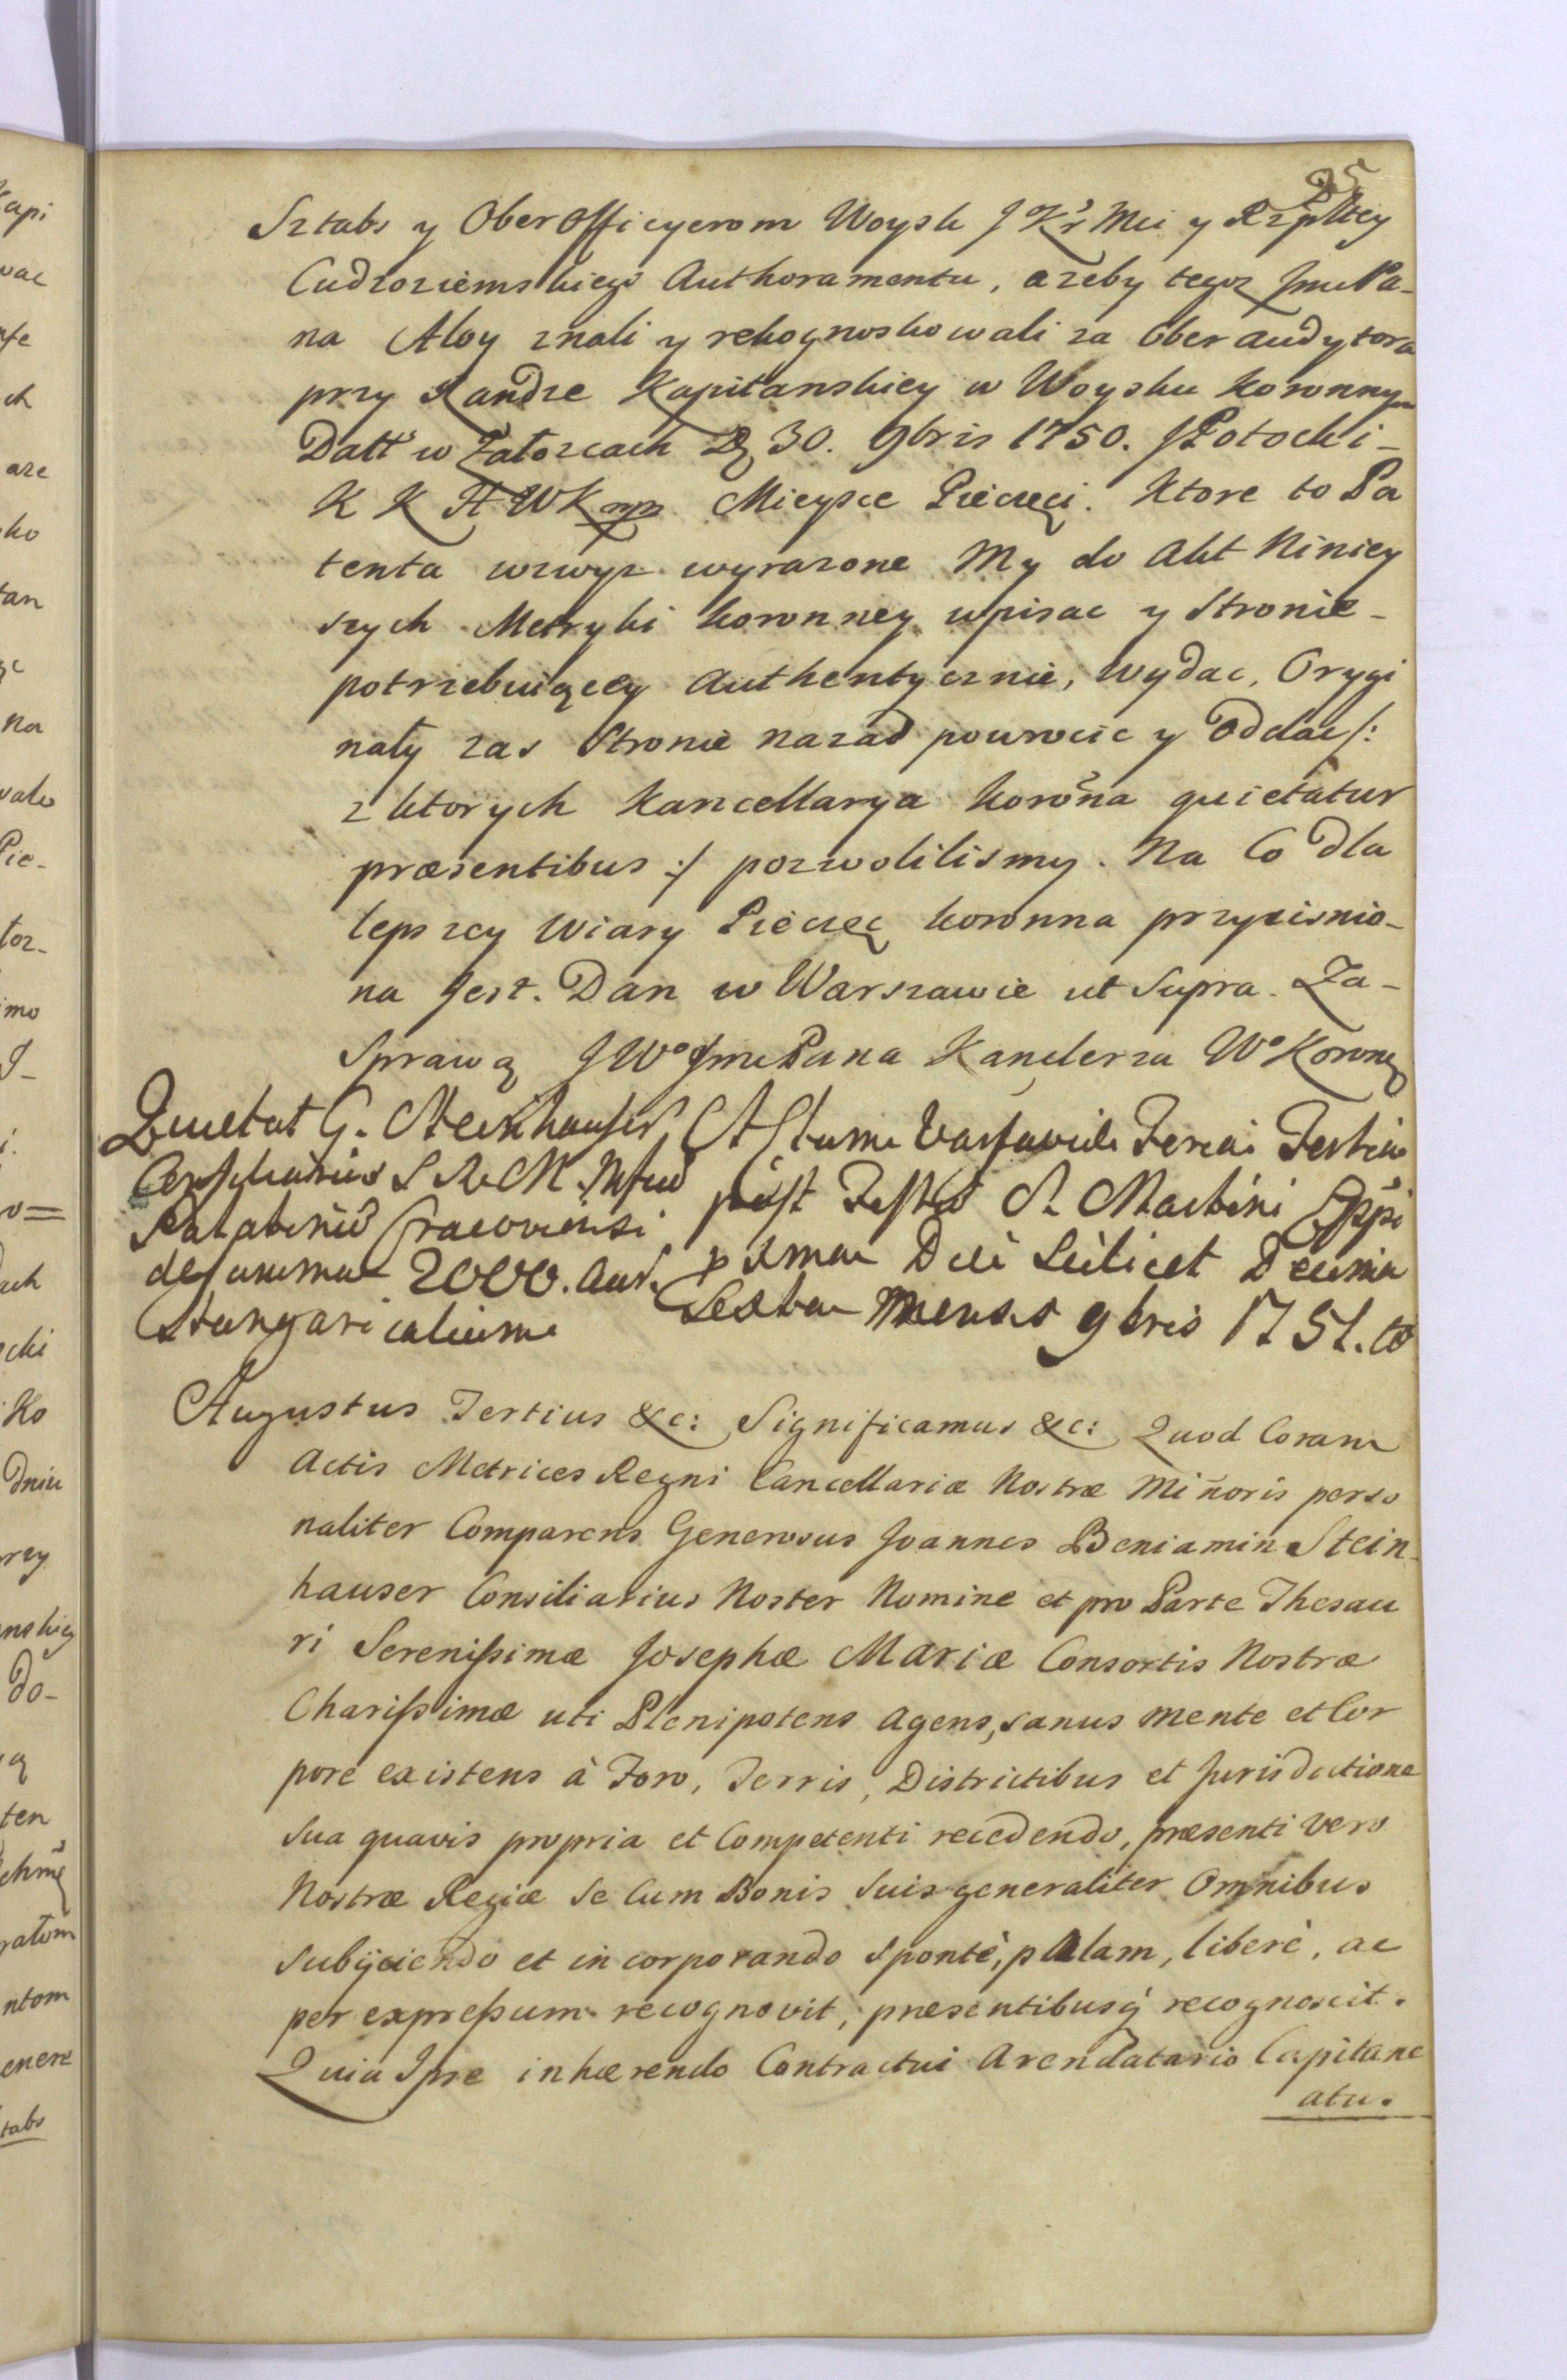 25
Sztabs y Ober Officyerom Woysk J Kr Mci y Rzpltey
Cudzoziemskiego Authoramentu, azeby tegoz Jmc Pa-
na Aloy znali y rekognoskowali za Ober audytora
przy Randze Kapitanskiey w Woysku koronnym
Datt w Załozcach D 30. 9bris 1750. JPotocki-
K K H W K mp Mieysce Pieczęci. Ktore to Pa
tenta wzwyz wyrazone My do Akt Niniey
szych Metryki koronney wpisac y Stronie-
potrzebuiącey Authentycznie, wydac, Orygi
nały zas Stronie nazad powrocic y Oddac/:
z ktorych Kancellarya Korona quietatur
præsentibus :/ pozwolilismy. Na Co dla
lepszey Wiary Pieczęc koronna przycisnio-
na Jest. Dan w Warszawie ut Supra. Za-
Sprawą JWo Jmc Pana Kanclerza Wo Korong
Quietat G. Steinhauser
Consiliarius S R M
Palatinū Cracoviensi
de summa 2000. aur.
Hungaricalium
Actum Varsaviæ Feria Tertia
post Festū S. Martini Eppi
pxima Die Scilicet Decima
Sexta Mensis 9bris 1751.
Augustus Tertius &c: Significamus &c: Quod Coram
Actis Metrices Regni Cancellariæ Nostræ Miñoris perso
naliter Comparens Generosus Joannes Beniamin Stein-
hauser Consiliarius Noster Nomine et pro Parte Thesau
ri Serenissimæ Josephæ Mariæ Consortis Nostræ
Charissimæ uti Plenipotens Agens, sanus mente et Cor
pore existens à Foro, Terris, Districtibus et Jurisdictione
sua quavis propria et Competenti recedendo, præsenti vero
Nostræ Regiæ se Cum Bonis suis generaliter Omnibus
subijciendo et incorporando spontè, palam, liberè, ac
per expressum recognovit, præsentibusq recognoscit.
Quia Ipse inhærendo Contractui Arendatario Capitane
atu.